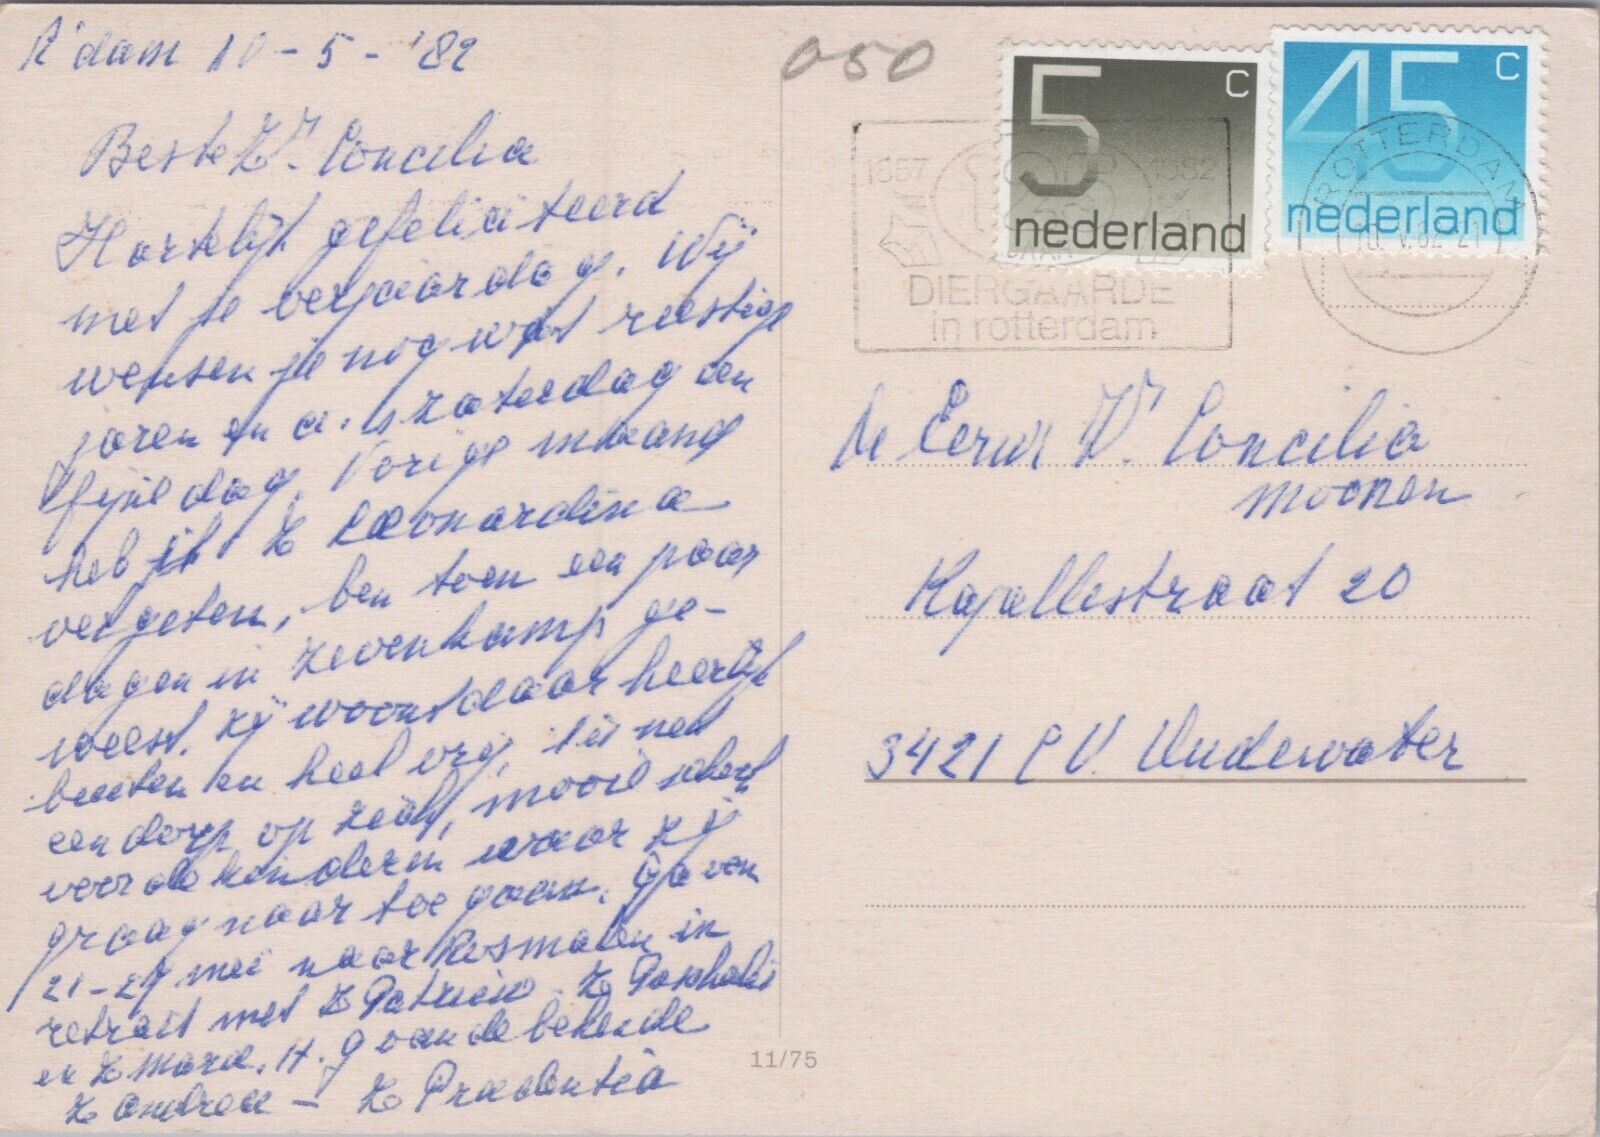 R'dam 10-5-'82
Beste Zr. Concilia
Hartelijk gefeliciteerd
met je verjaardag. Wij
wensen je nog wat rustige
jaren en a.s. zaterdag een
fijne dag. Vorige maand
heb ik Z Leonardina
vergeten, ben toen een paar
dagen in Zevenkamp ge-
weest. Zij woont daar heerlijk
buiten en heel vrij, 't is net
een dorp op zich, mooie school
voor de kinderen waar zij
graag naar toe gaan. Ga van
21-27 mei naar Rosmalen in
retrait met Z Patricio. Z Paschalis
en Z Mara. H. g van de bekende
Z Andrea - Z Prudentia
050
5 c
nederland
45 c
nederland
1857 1982
DIERGAARDE
in rotterdam
ROTTERDAM
10.V.82-21
de Eerw Zr. Concilia
Moonen
Kapellestraat 20
3421 CV. Oudewater
11/75